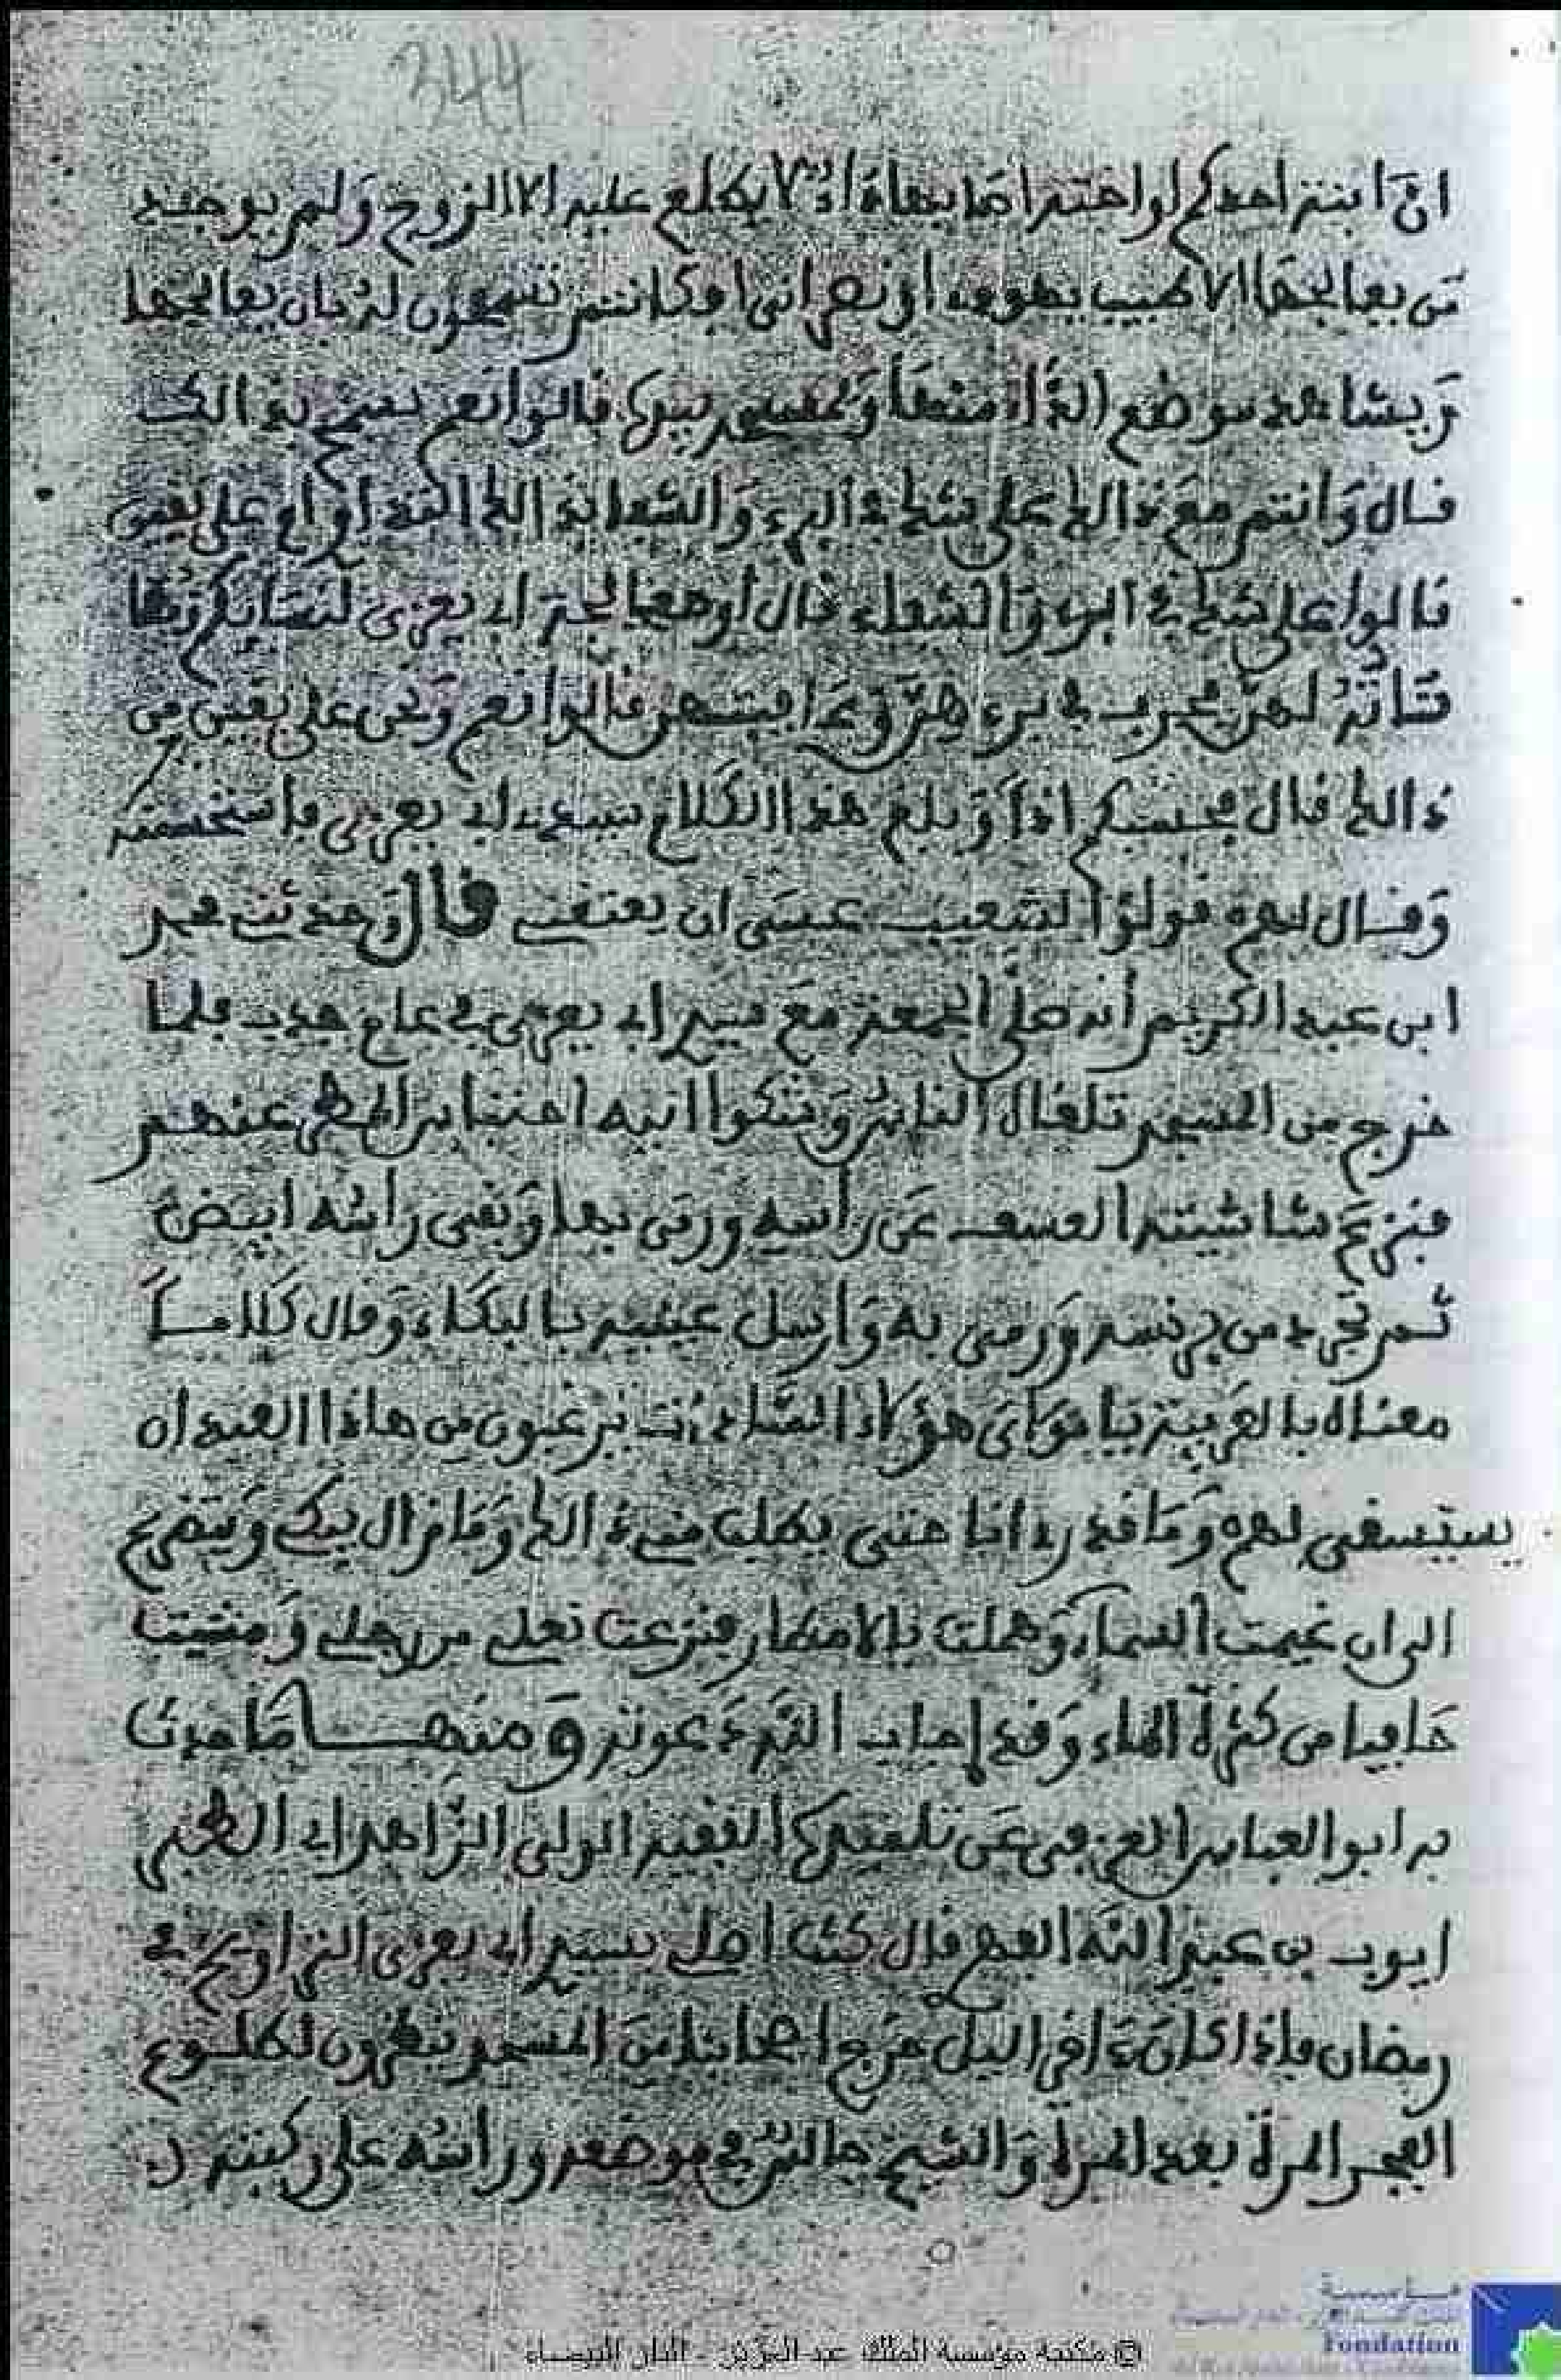 344
ان ابنة احدكم او اخته اصابها داء لا يطلع عليه الا الزوج ولم يوجد
من يعالجها الا طبيب يهودي او نصراني اوكنتم تسمحون له بان يعالجها
ويشاهد موضع الداء منها ويمسه بيده قالوا نعم نسمح بذالك
قال وانتم مع ذالك على شك في البرء والشفا بذالك الدواء او على يقين
قالوا على شك في البرء والشفاء قال اوهمعالجة ابي يعزى لنسائكم وما
تاته لهن مجرب في برءهن وعافيتهن قالوا نعم ونحن على يقين من
ذالك قال فحسبكم اذا وبلغ هذا الكلام سيدي ابي يعزى فاستحسنه
وقال لهم قولوا لشعيب عسى ان يعتقني قال وحدثني عمر
ابن عبد الكريم انه صلى الجمعة مع سيدي ابي يعزى في عام جدب فلما
خرج من المسجد تلقاه الناس وشكوا اليه احتباس المطر عنهم
فنزع شاشية العسف عن راسه ورمى بها وبقى راسه ابيض
ثم تجرد من برنسه ورمى به وارسل عينيه بالبكاء وقال كلاما
معناه بالعربية يا مولاي هؤلاء السادات يرغبون من هاذا العبد ان
يستسقى لهم وما قدري انا حتى يطلب مني ذالك وما زال يبكي ويتضرع
الى ان غيمت السماء وهملت بالامطار فنزعت نعلي من رجلي ومشيت
حافيا من كثرة الماء وقد اجاب الله دعوته ومنها ما حدث
به ابو العباس العزفي عن تلميذه الفقيه الولي الزاهد ابي الصبر
ايوب بن عبد الله الفهري قال كنت اصلي بسيدي ابي يعزى التراويح في
رمضان فاذا كان في اخر اليل خرج اصحابنا من المسجد ينظرون لطلوع
الفجر المرة بعد المرة والشيخ جالس في موضعه وراسه على ركبته
© مكتبة مؤسسة الملك عبد العزيز - الدار البيضاء
Fondation